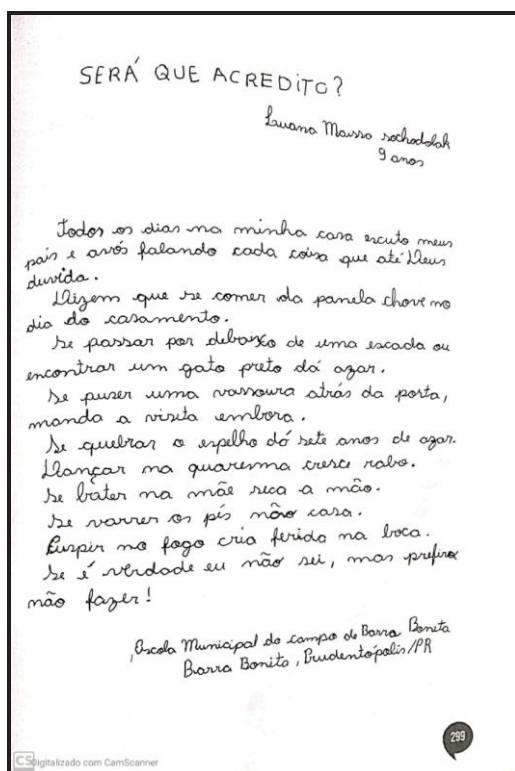 SERÁ QUE ACREDITO?
Luana Mausso sochodolak
9 anos
Todos os dias na minha casa escuto meus
pais e avós falando cada coisa que até Deus
duvida.
Dizem que se comer da panela chove no
dia do casamento.
Se passar por debaixo de uma escada ou
encontrar um gato preto dá azar.
Se puser uma vassoura atrás da porta,
manda a visita embora.
Se quebrar o espelho dá sete anos de azar.
Dançar na quaresma cresce rabo.
Se bater na mãe seca a mão.
Se varrer os pés não casa.
Cuspir no fogo cria ferida na boca.
Se é verdade eu não sei, mas prefiro
não fazer!
Escola Municipal do campo de Barra Bonita
Barra Bonita, Prudentópolis/PR
299
CS Digitalizado com CamScanner